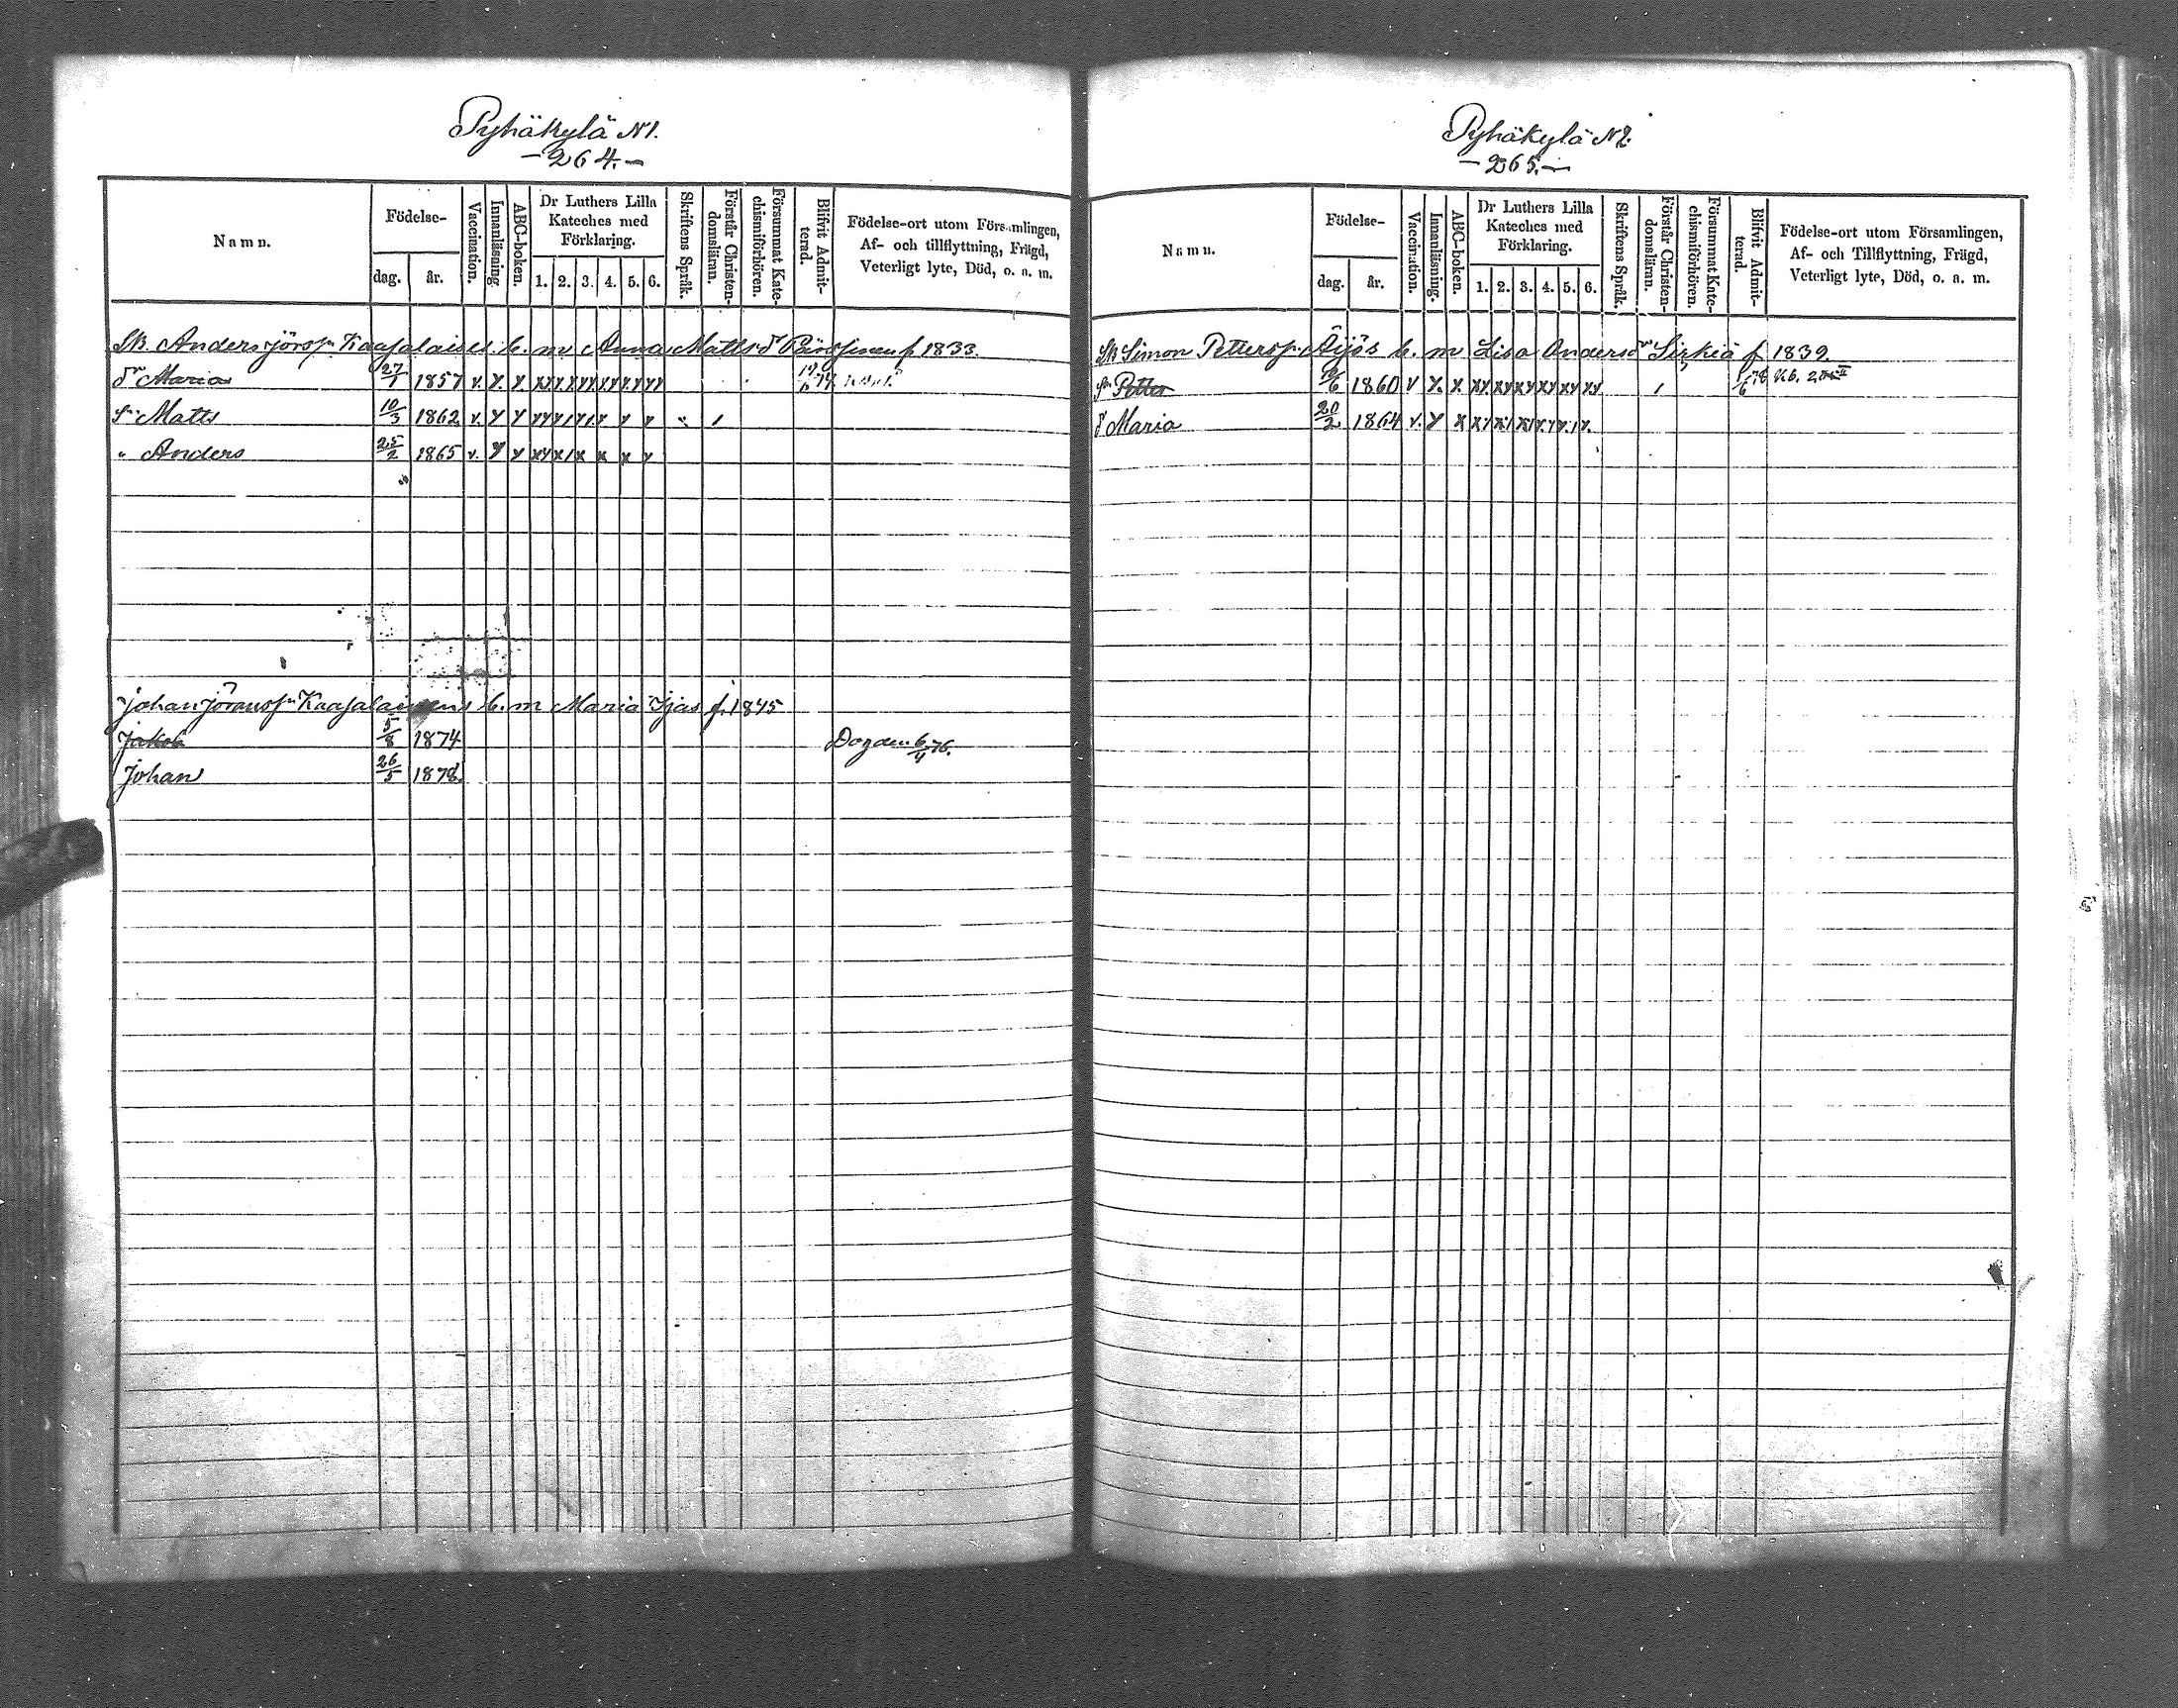 Pyhäkylä N1.
- 264. -
Namn.
Födelse-
dag.
år.
Vaccination.
Innanläsning
ABC-boken.
Dr Luthers Lilla
Kateches med
Förklaring.
1. 2. 3. 4. 5. 6.
Skriftens Språk.
Förstår Christen-
domsläran.
Försummat Kate-
chismiförhören.
Blifvit Admit-
terad.
Födelse-ort utom Församlingen,
Af- och tillflyttning, Frägd,
Veterligt lyte, Död, o. a. m.
Anders b. m Anna Matts dr f 1833.
dr Maria 27/1 1857 v.
sn Matts 10/3 1862 v.
" Anders 25/2 1865 v.
Johan Göranssn b. m Maria Ijäs f. 1845
Jakob 5/8 1874 6/4 76.
Johan 26/5 1878.
Pyhäkylä N2.
- 265. -
Namn.
Födelse-
dag.
år.
Vaccination.
Innanläsning.
ABC-boken.
Dr Luthers Lilla
Kateches med
Förklaring.
1. 2. 3. 4. 5. 6.
Skriftens Språk.
Förstår Christen-
domsläran.
Försummat Kate-
chismiförhören.
Blifvit Admit-
terad.
Födelse-ort utom Församlingen,
Af- och Tillflyttning, Frägd,
Veterligt lyte, Död, o. a. m.
Simon Petterssn Äijös b. m Lisa Anders dr Sirkiä f 1839
sn Petter 1860 v
d Maria 20/2 1864 v.